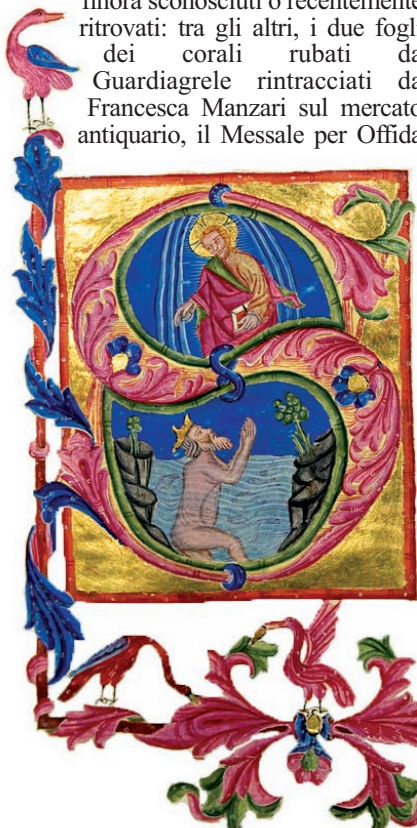 finora sconosciuti o recentemente
ritrovati: tra gli altri, i due fogli
dei corali rubati da
Guardiagrele rintracciati da
Francesca Manzari sul mercato
antiquario, il Messale per Offida